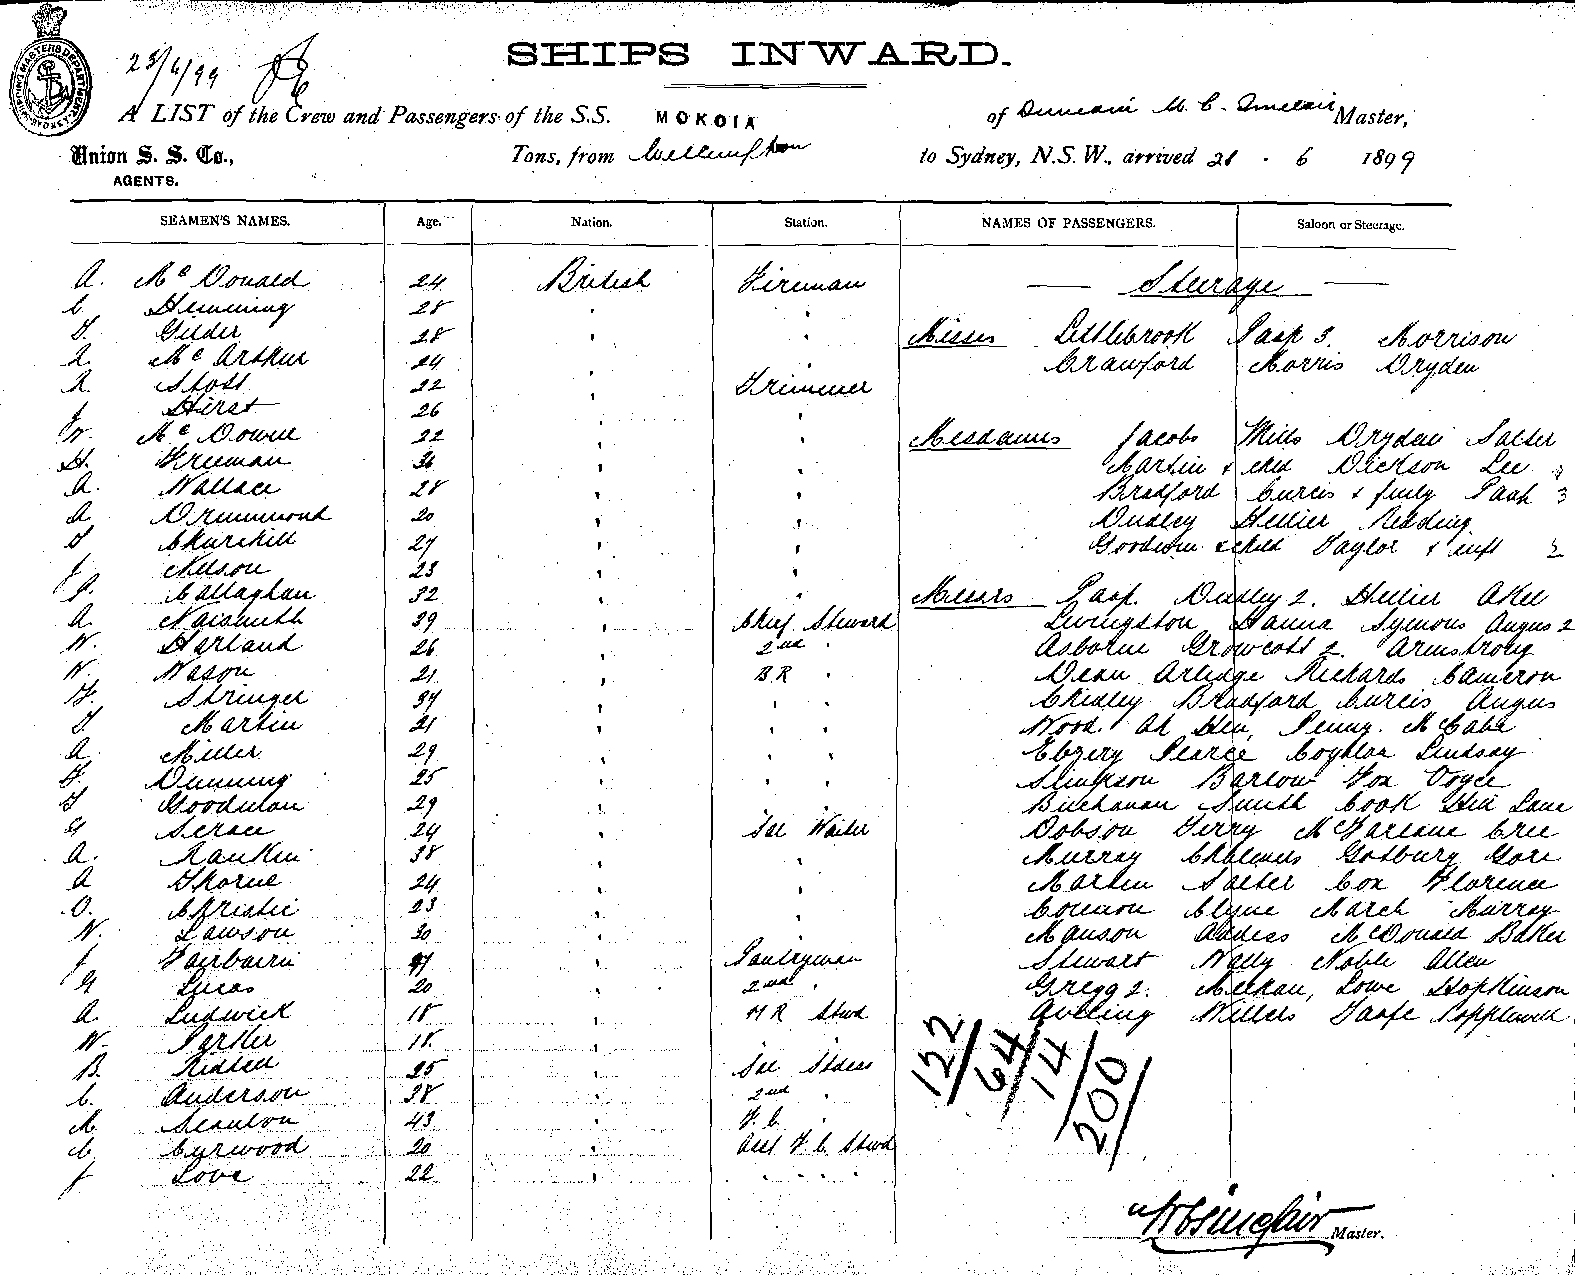 SHIPS INWARD.
23/6/99
A LIST of the Crew and Passengers of the S.S. MOKOIA of Duncan M. C. Sinclair Master,
Union S. S. Co., AGENTS. Tons, from Wellington to Sydney, N.S.W., arrived 21 . 6 1899
SEAMEN'S NAMES. Age. Nation. Station. NAMES OF PASSENGERS. Saloon or Steerage.
A. McDonald 24 British Fireman
C. Hemming 28
Gilder 28
McArthur 24
Stott 22 Trimmer
J Hirst 26
W. McDowell 22
H. Freeman
A. Wallace 28
A. Drummond 20
Churchill 27
J. Nelson 23
P. Callaghan 32
A. Naismith 39 Chief Steward
W. Harland 26 2nd
W. Wason 21 B R
Stringer
Martin 21
A. Miller 29
Dunning 25
Goodman 29
24 Sal Waiter
A. Rankin 38
A Thorne 24
O. Christie 23
W. Lawson 30
J Fairbairn Pantryman
Lucas 20 2nd
A. Ludwick 18 M R Stwd
W. Parker 18
B. 25 Sal Stdess
C. Anderson 38 2nd
M. Scanlon 43 F. C.
C. Curwood 20 Asst F. C. Stwd
J Love 22
Steerage
Misses Littlebrook Paap 3. Morrison
Crawford Morris Dryden
Mesdames Jacobs Mills Dryden Salter
Martin & chd Dickson Lee
Bradford Curtis & fmly Paap 3
Dudley Hellier Redding
Goodwin & child Taylor & inft 2
Messrs Paap. Dudley 2. Hellier Akel
Livingston Hanna Symons Angus 2
Osborne Growcott 2. Armstrong
Dean Arlidge Richards Cameron
Chidley Bradford Curtis Angus
Wood. Ah Hen, Penny. McCabe
Ebzery Pearce Coghlan Lindsay
Simpson Barlow Fox Voyce
Buchanan Smith Cook Lane
Dobson Terry McFarlane Cree
Murray Chalmers Gotburg Gore
Martin Salter Cox Florence
Clyne March Murray
Manson McDonald Baker
Stewart Wally Noble Allen
Gregg 2. Lowe Hopkinson
Aveling Willers Popplewell
122/
64/
14/
200/
Sinclair Master.